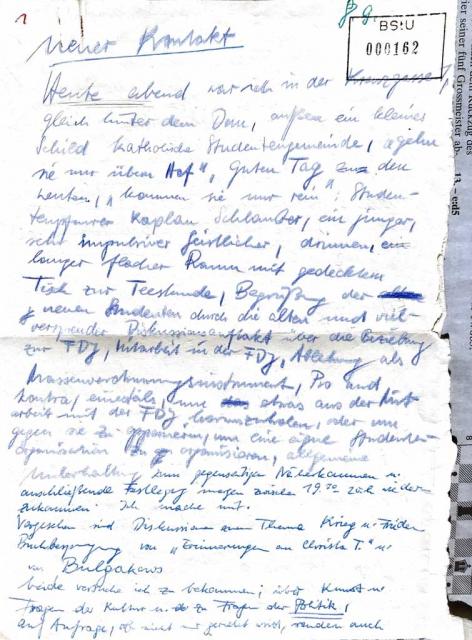 1
BStU
000162
neuer Kontakt
Heute abend war ich in der
gleich hinter dem Dom, außen ein kleines
Schild Katholische Studentengemeinde,
sie nur über Hof", guten Tag den
Leuten, "kommen sie nur rein", Studen-
tenpfarrer Kaplan ein junger,
sehr impulsiver Geistlicher, drinnen,
langer flacher Raum mit gedecktem
Tisch zur Teestunde, Begrüßung der
neuen Studenten durch die alten und viel-
versprechender Diskussionsauftakt über die Beziehung
zur FDJ, Mitarbeit in der FDJ, Ablehnung als
Pro und
Kontra, einesteils, um etwas aus der Mit-
arbeit mit der FDJ herauszuholen, oder um
gegen sie zu opponieren, um eine eigne Studenten-
organisation zu organisieren, allgemeine
Unterhaltung zum gegenseitigen Näherkommen u.
anschließende Festlegung morgen zwischen 19.30 20h wieder
zukommen. Ich mache mit.
Vorgesehen sind Diskussionen zum Thema Krieg u. Frieden
Buchbesprechung von "Erinnerungen an Christa T." u.
von Bulgakows
beide versuche ich zu bekommen; über Kunst u.
Fragen der Kultur u. zu Fragen der Politik,
auf Anfrage, ob nicht nur geredet wird, sondern auch
seiner fünf Grossmeister ab.
13. – ed5